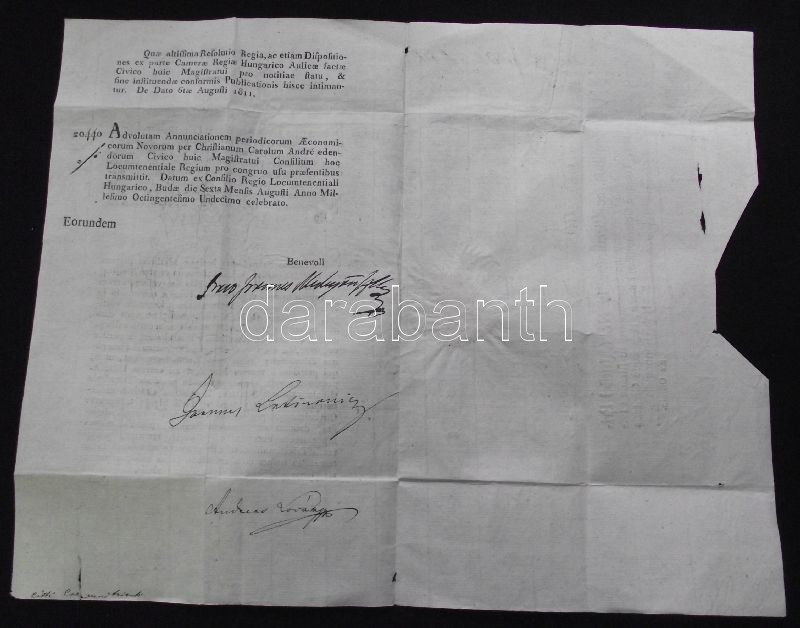 Quæ altissima Resolutio Regia, ac etiam Dispositio-
nes ex parte Cameræ Regiæ Hungarico Aulicæ factæ
Civico huic Magistratui pro notitiae statu, &
fine instituendæ conformis Publicationis hisce intiman-
tur. De Dato 6tæ Augusti 1811.
20440 Advolutam Annunciationem periodicorum Æconomi-
corum Novorum per Christianum Carolum André eden-
dorum Civico huic Magistratui Consilium hoc
Locumtenentiale Regium pro congruo usu præsentibus
transmittit. Datum ex Consilio Regio Locumtenentiali
Hungarico, Budæ die Sexta Mensis Augusti Anno Mil-
lesimo Octingentesimo Undecimo celebrato.
Eorundem
Benevoli
darabanth
Joannes
Andreas